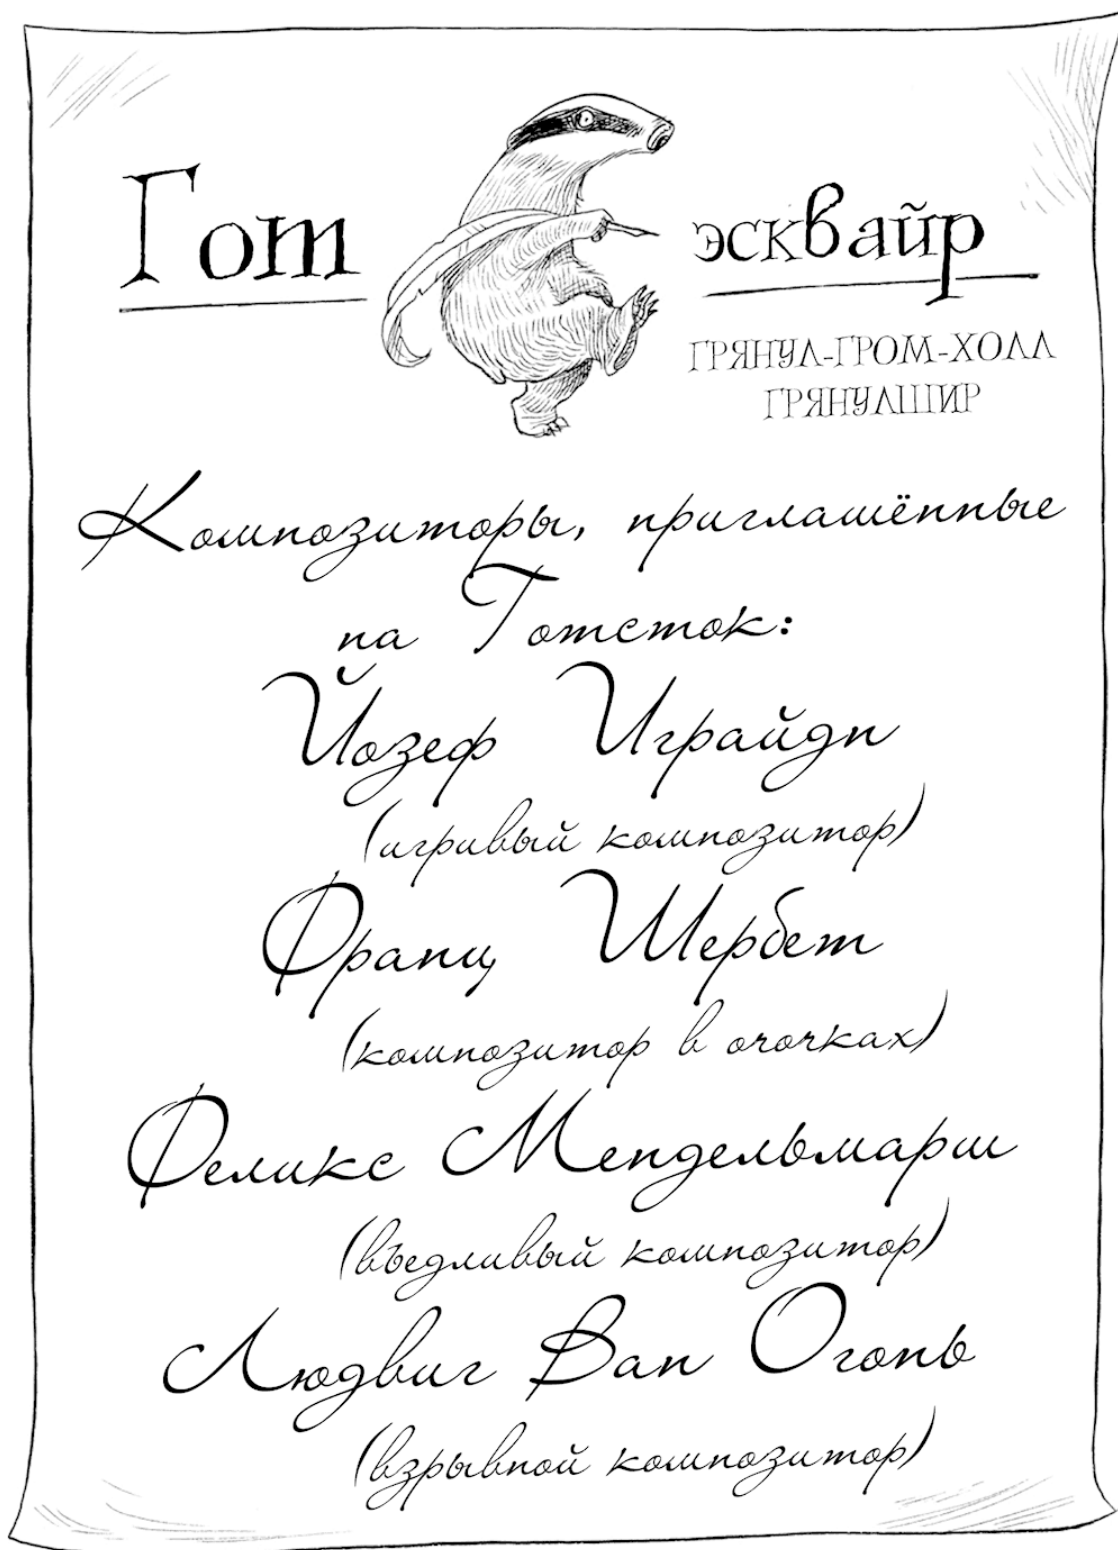 Гот эсквайр
ГРЯНУЛ-ГРОМ-ХОЛЛ
ГРЯНУЛШИР
Композиторы, приглашённые
на Готсток:
Йозеф Играйдн
(игривый композитор)
Франц Шербет
(композитор в очочках)
Феликс Мендельмарш
(въедливый композитор)
Людвиг Ван Огонь
(взрывной композитор)